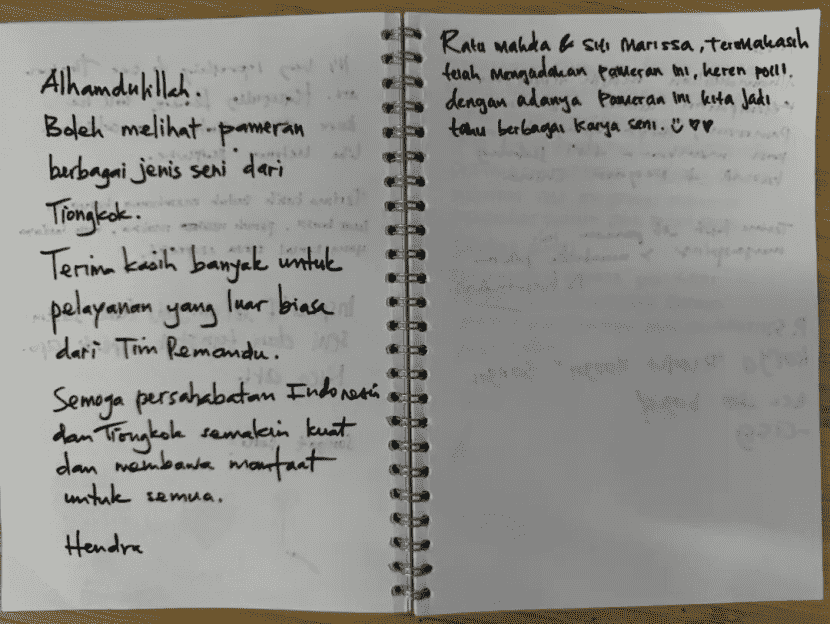 Alhamdulillah.
Boleh melihat pameran
berbagai jenis seni dari
Tiongkok.
Terima kasih banyak untuk
pelayanan yang luar biasa
dari Tim Pemandu.
Semoga persahabatan Indonesia
dan Tiongkok semakin kuat
dan membawa manfaat
untuk semua.
Hendra
Ratu Mahda & Siti Marissa, Terimakasih
telah mengadakan pameran ini, keren poll!
dengan adanya Pameran ini kita Jadi
tahu berbagai karya seni. ☺ ♡♡